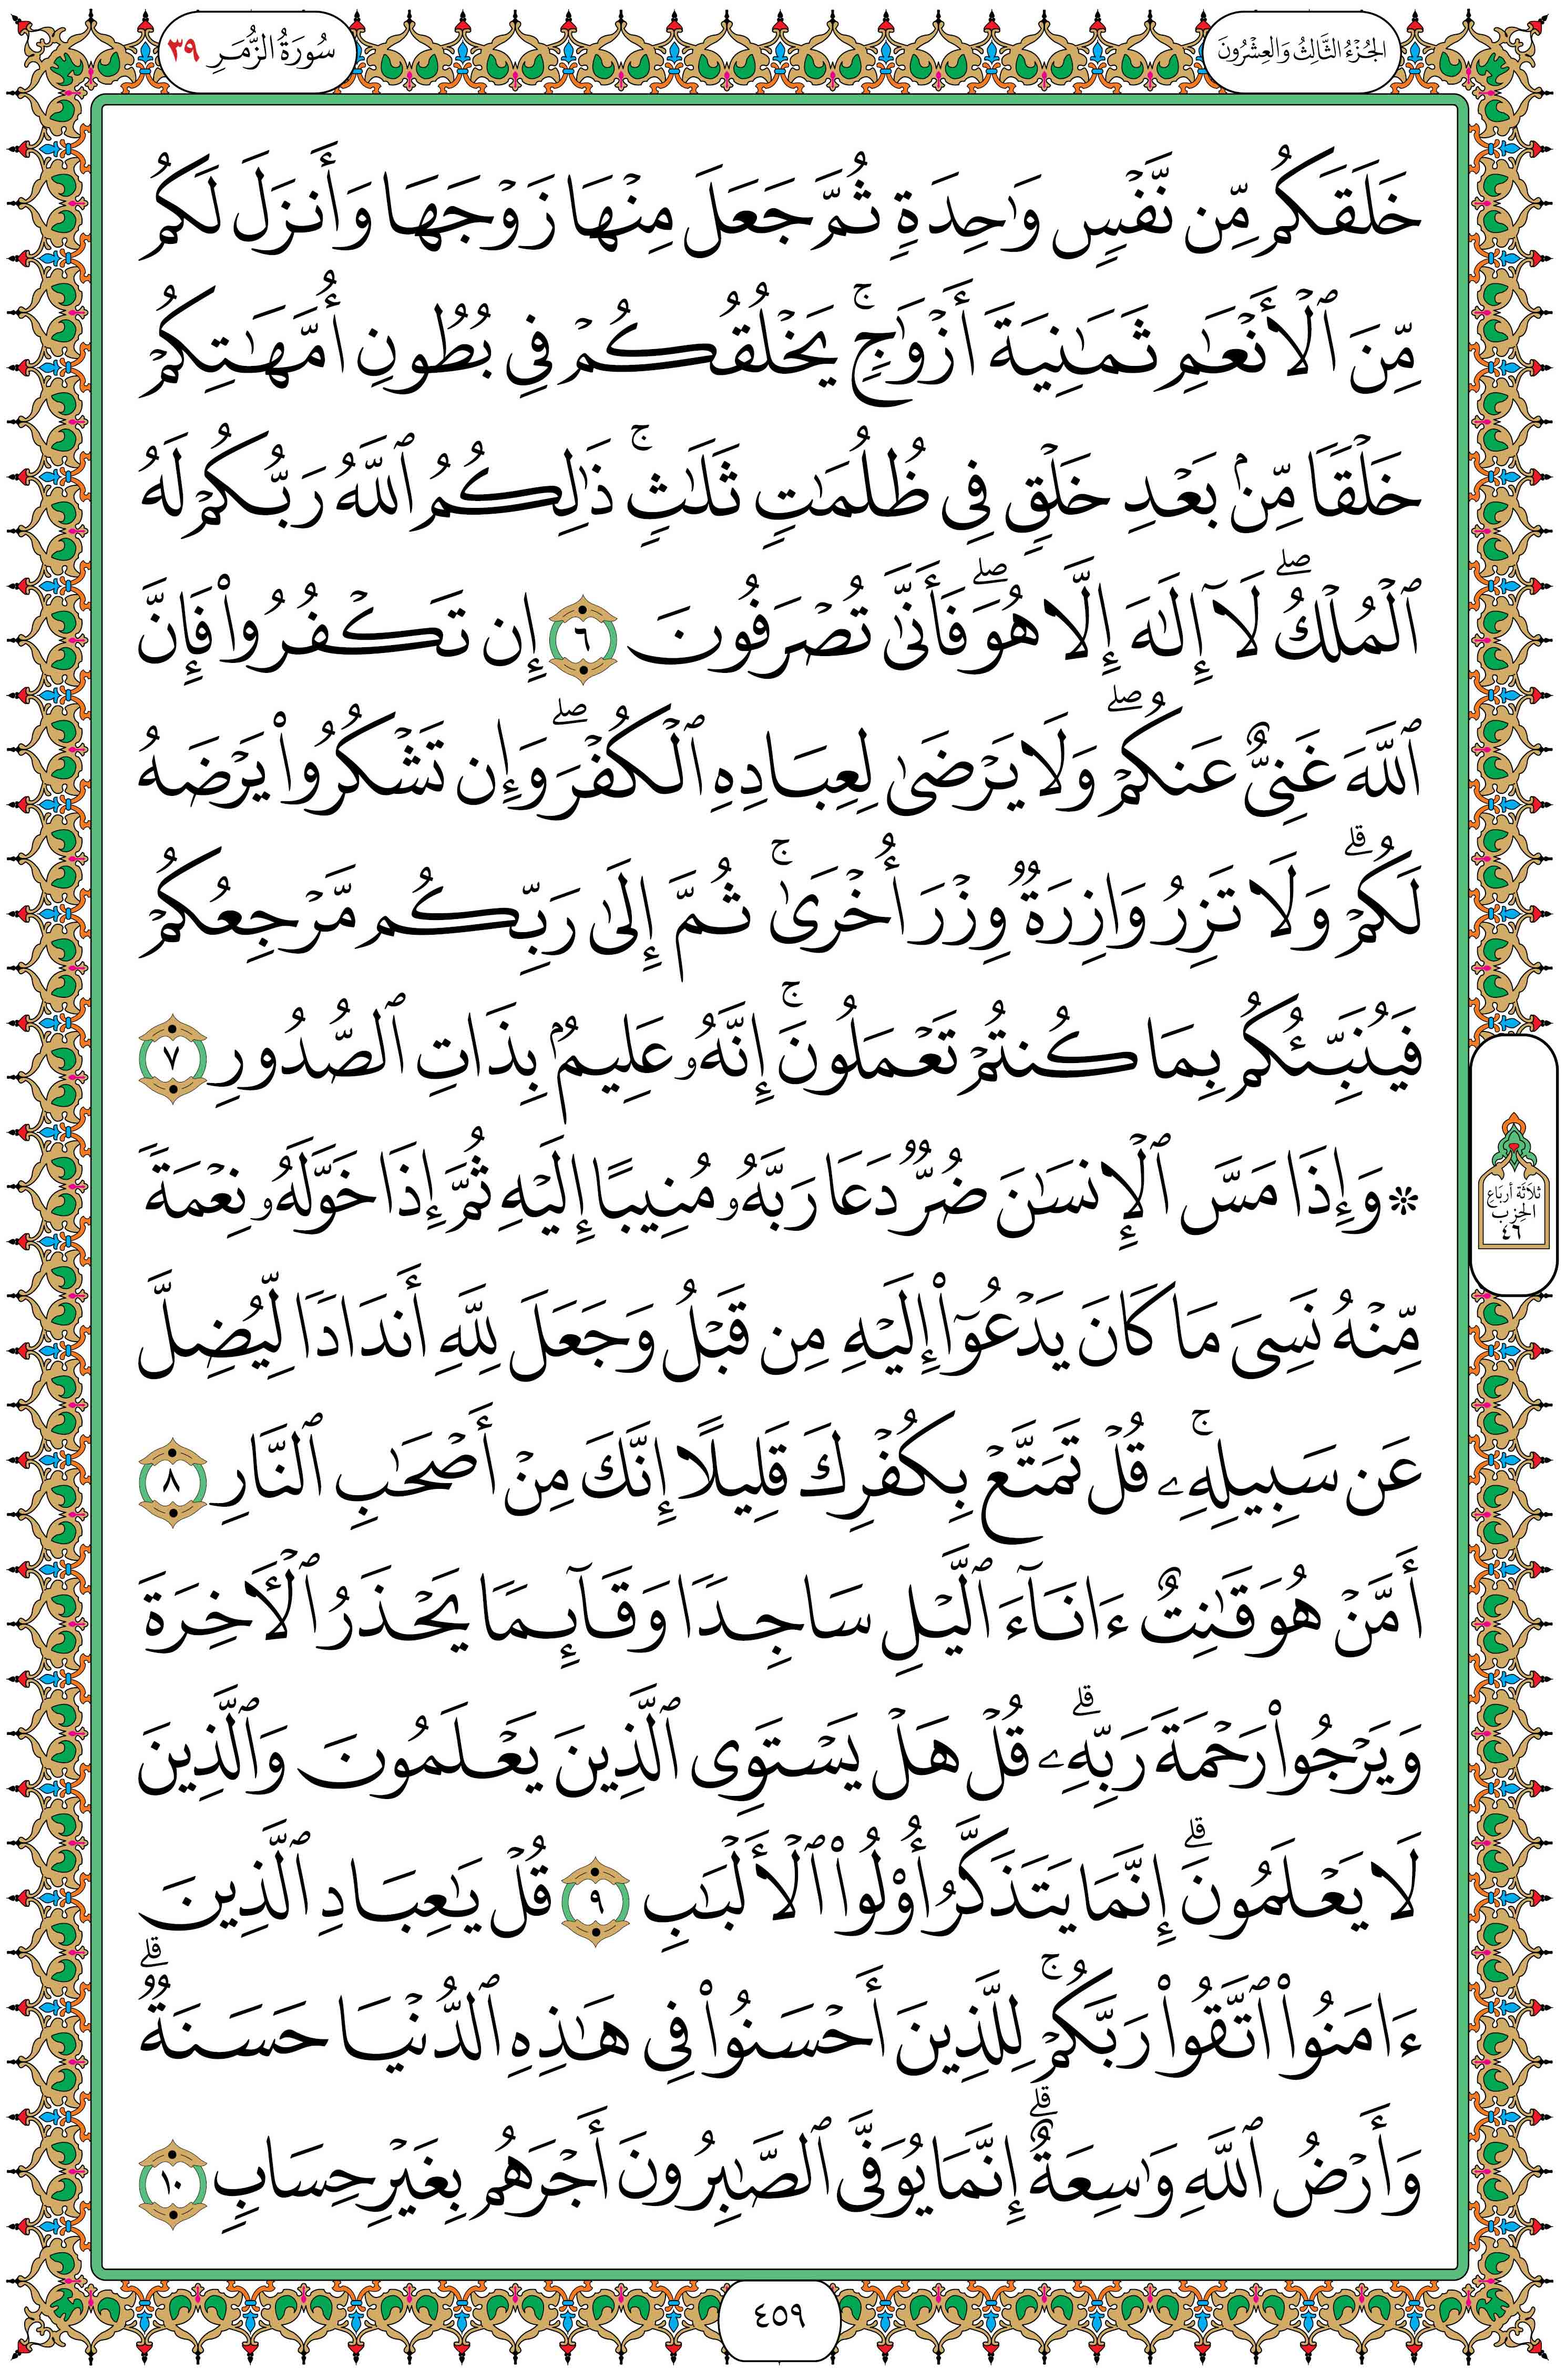 الجُزْءُ الثَّالِثُ وَالعِشْرُونَ
سُورَةُ الزُّمَرِ ٣٩
خَلَقَكُم مِّن نَّفۡسٖ وَٰحِدَةٖ ثُمَّ جَعَلَ مِنۡهَا زَوۡجَهَا وَأَنزَلَ لَكُم
مِّنَ ٱلۡأَنۡعَٰمِ ثَمَٰنِيَةَ أَزۡوَٰجٖۚ يَخۡلُقُكُمۡ فِي بُطُونِ أُمَّهَٰتِكُمۡ
خَلۡقٗا مِّنۢ بَعۡدِ خَلۡقٖ فِي ظُلُمَٰتٖ ثَلَٰثٖۚ ذَٰلِكُمُ ٱللَّهُ رَبُّكُمۡ لَهُ
ٱلۡمُلۡكُۖ لَآ إِلَٰهَ إِلَّا هُوَۖ فَأَنَّىٰ تُصۡرَفُونَ ٦ إِن تَكۡفُرُواْ فَإِنَّ
ٱللَّهَ غَنِيٌّ عَنكُمۡۖ وَلَا يَرۡضَىٰ لِعِبَادِهِ ٱلۡكُفۡرَۖ وَإِن تَشۡكُرُواْ يَرۡضَهُ
لَكُمۡۗ وَلَا تَزِرُ وَازِرَةٞ وِزۡرَ أُخۡرَىٰۚ ثُمَّ إِلَىٰ رَبِّكُم مَّرۡجِعُكُمۡ
فَيُنَبِّئُكُم بِمَا كُنتُمۡ تَعۡمَلُونَۚ إِنَّهُۥ عَلِيمُۢ بِذَاتِ ٱلصُّدُورِ ٧
۞ وَإِذَا مَسَّ ٱلۡإِنسَٰنَ ضُرّٞ دَعَا رَبَّهُۥ مُنِيبًا إِلَيۡهِ ثُمَّ إِذَا خَوَّلَهُۥ نِعۡمَةٗ
مِّنۡهُ نَسِيَ مَا كَانَ يَدۡعُوٓاْ إِلَيۡهِ مِن قَبۡلُ وَجَعَلَ لِلَّهِ أَندَادٗا لِّيُضِلَّ
عَن سَبِيلِهِۦۚ قُلۡ تَمَتَّعۡ بِكُفۡرِكَ قَلِيلًا إِنَّكَ مِنۡ أَصۡحَٰبِ ٱلنَّارِ ٨
أَمَّنۡ هُوَ قَٰنِتٌ ءَانَآءَ ٱلَّيۡلِ سَاجِدٗا وَقَآئِمٗا يَحۡذَرُ ٱلۡأٓخِرَةَ
وَيَرۡجُواْ رَحۡمَةَ رَبِّهِۦۗ قُلۡ هَلۡ يَسۡتَوِي ٱلَّذِينَ يَعۡلَمُونَ وَٱلَّذِينَ
لَا يَعۡلَمُونَۗ إِنَّمَا يَتَذَكَّرُ أُوْلُواْ ٱلۡأَلۡبَٰبِ ٩ قُلۡ يَٰعِبَادِ ٱلَّذِينَ
ءَامَنُواْ ٱتَّقُواْ رَبَّكُمۡۚ لِلَّذِينَ أَحۡسَنُواْ فِي هَٰذِهِ ٱلدُّنۡيَا حَسَنَةٞۗ
وَأَرۡضُ ٱللَّهِ وَٰسِعَةٌۗ إِنَّمَا يُوَفَّى ٱلصَّٰبِرُونَ أَجۡرَهُم بِغَيۡرِ حِسَابٖ ١٠
ثَلَاثَة أَرْبَاع
الحِزْب
٤٦
٤٥٩